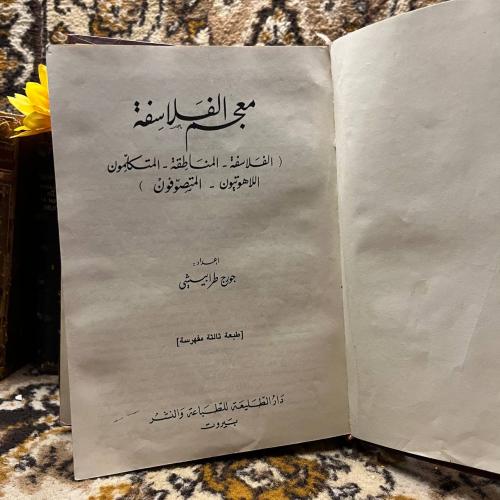 معجم الفلاسفة
( الفلاسفة - المناطقة - المتكلمون
اللاهوتيون - المتصوّفون )
اعداد :
جورج طرابيشي
[طبعة ثالثة مفهرسة]
دار الطليعة للطباعة والنشر
بيروت